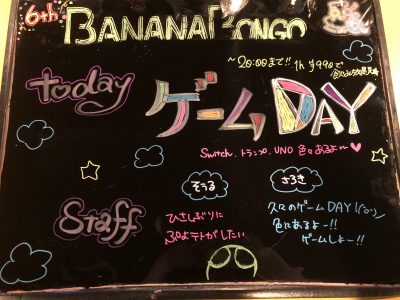 6th BANANA BONGO
～20:00まで!! 1h ¥990で
today ゲームDAY
Switch、トランプ、UNO 色々あるよ〜♥
そうる
Staff ひさしぶりに
ぷよテトがしたい
久々のゲームDAY
色々あるよー!!
ゲームしよー!!